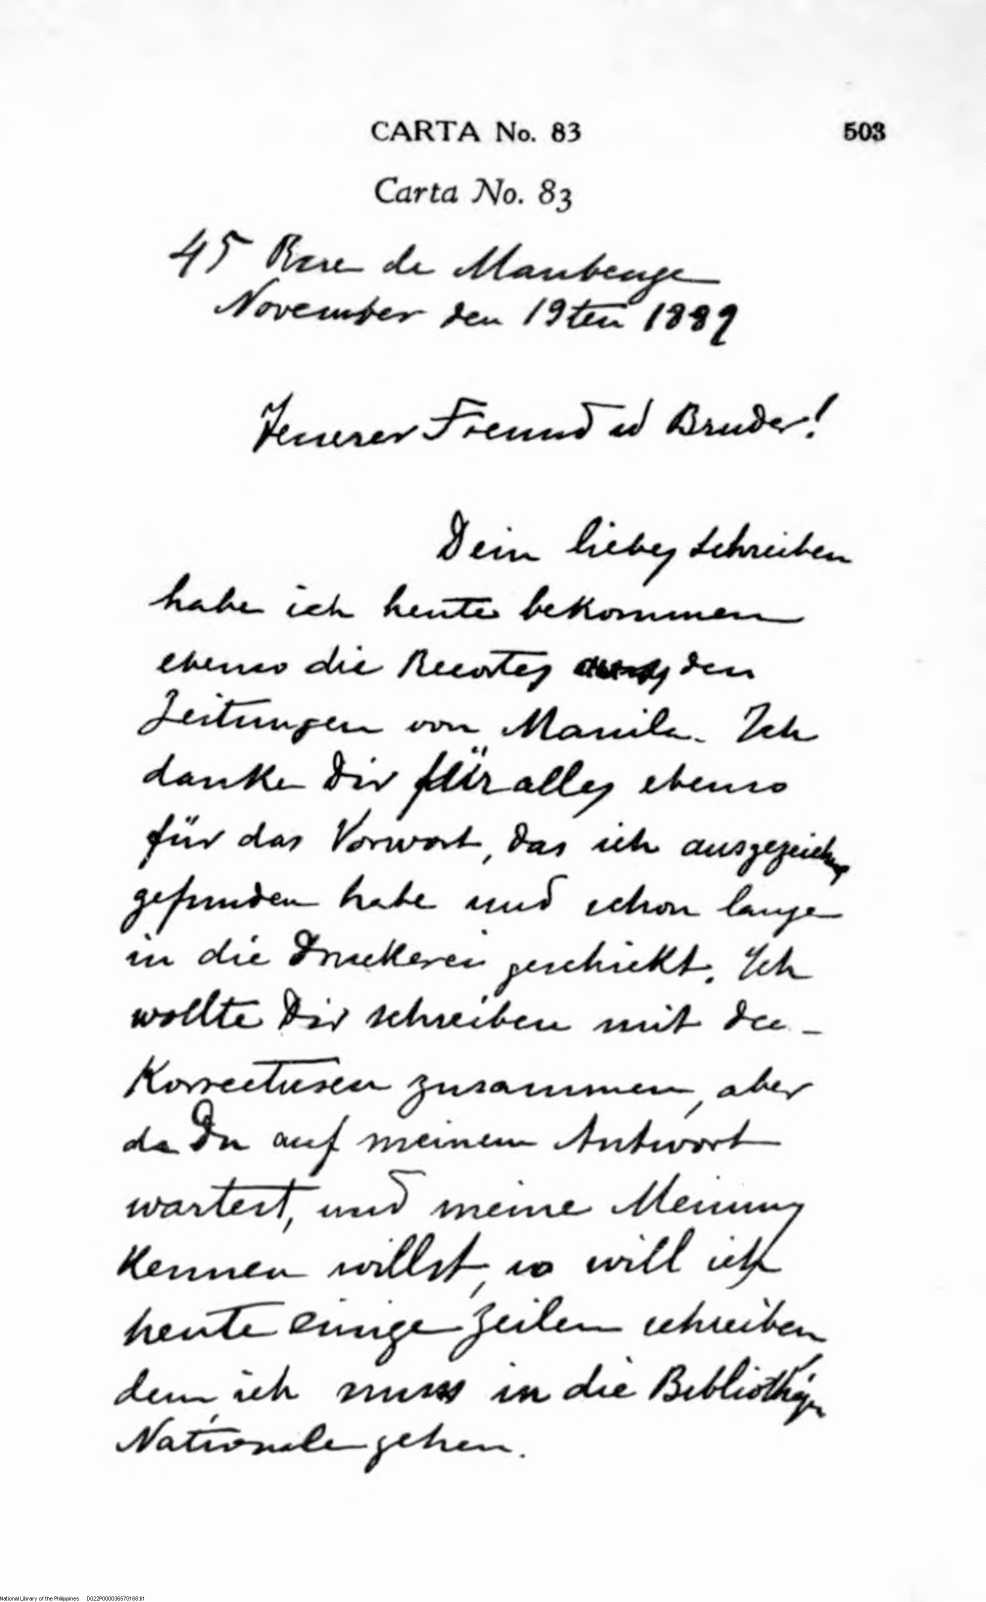 CARTA No. 83 503
Carta No. 83
45 Rue de Maubeuge
November den 19ten 1889
Teuerer Freund u Bruder!
Dein liebes Schreiben
habe ich heute bekommen
ebenso die Recortes aus den
Zeitungen von Manila. Ich
danke Dir für alles ebenso
für das Vorwort, das ich ausgezeichnet
gefunden habe und schon lange
in die Druckerei geschickt. Ich
wollte Dir schreiben mit den
Korrecturen zusammen, aber
da Du auf meinem Antwort
wartest, und meine Meinung
kennen willst, so will ich
heute einige Zeilen schreiben,
denn ich muss in die
Nationale gehen.
National Library of the Philippines